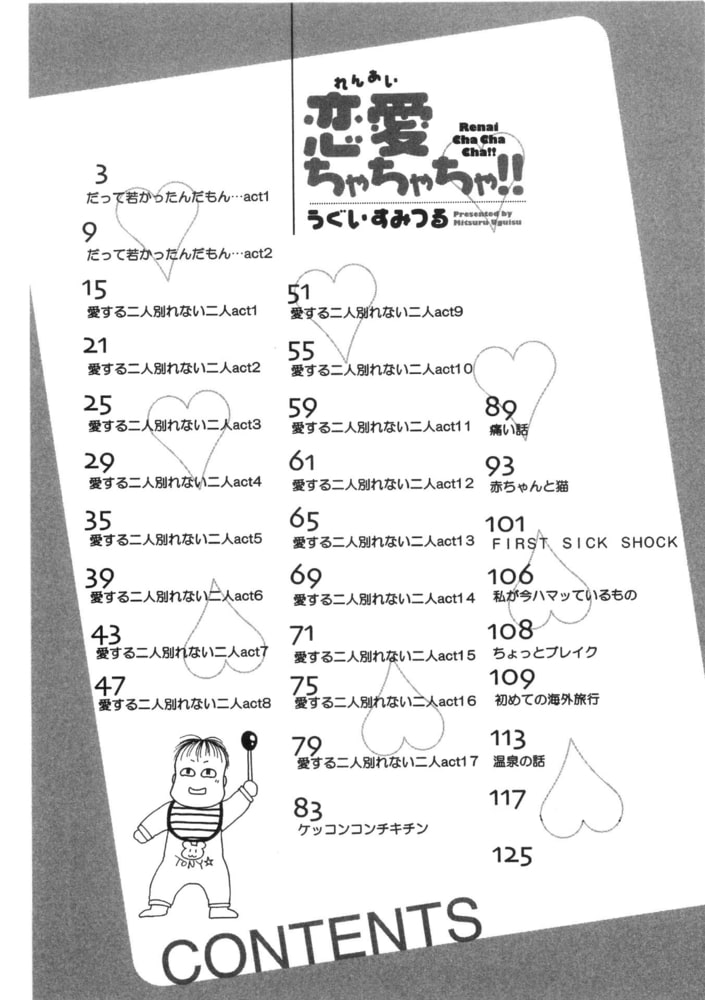 れんあい
恋愛
ちゃちゃちゃ!!
Renai
Cha Cha
Cha!!
うぐいすみつる
Presented by
Mitsuru Uguisu
3
だって若かったんだもん…act1
9
だって若かったんだもん…act2
15
愛する二人別れない二人act1
21
愛する二人別れない二人act2
25
愛する二人別れない二人act3
29
愛する二人別れない二人act4
35
愛する二人別れない二人act5
39
愛する二人別れない二人act6
43
愛する二人別れない二人act7
47
愛する二人別れない二人act8
51
愛する二人別れない二人act9
55
愛する二人別れない二人act10
59
愛する二人別れない二人act11
61
愛する二人別れない二人act12
65
愛する二人別れない二人act13
69
愛する二人別れない二人act14
71
愛する二人別れない二人act15
75
愛する二人別れない二人act16
79
愛する二人別れない二人act17
83
ケッコンコンチキチン
89
痛い話
93
赤ちゃんと猫
101
FIRST SICK SHOCK
106
私が今ハマッているもの
108
ちょっとブレイク
109
初めての海外旅行
113
温泉の話
117
125
TONY☆
CONTENTS